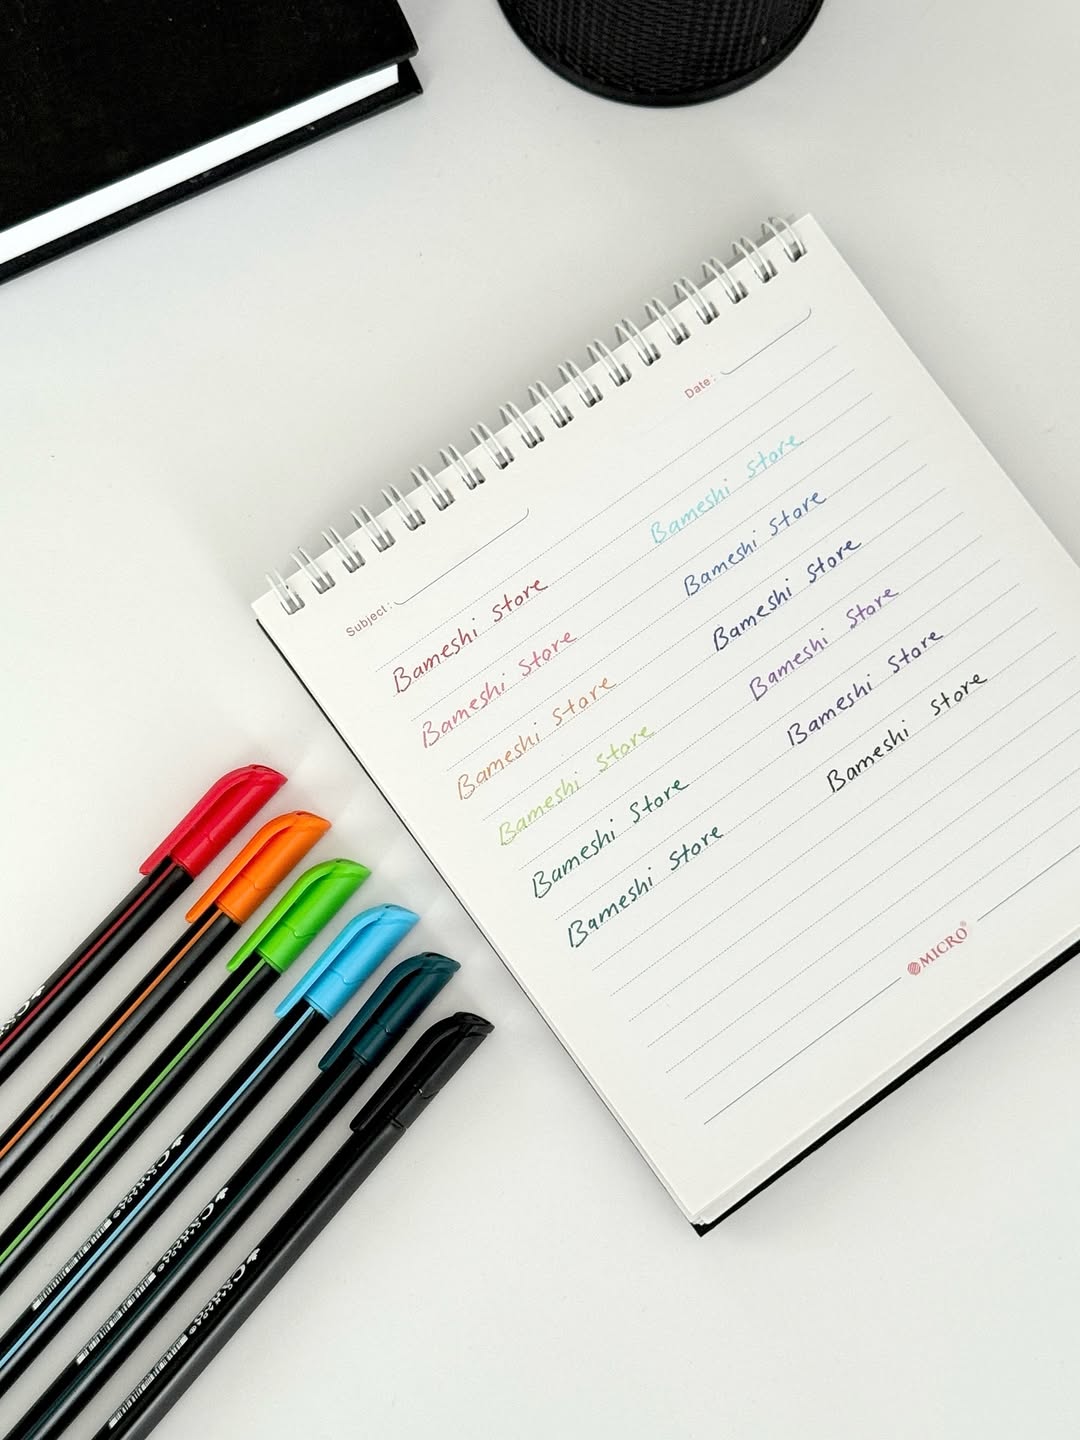 Date:
Subject:
Bameshi Store
Bameshi Store
Bameshi Store
Bameshi Store
Bameshi Store
Bameshi Store
Bameshi Store
Bameshi Store
Bameshi Store
Bameshi Store
Bameshi Store
Bameshi Store
MICRO®